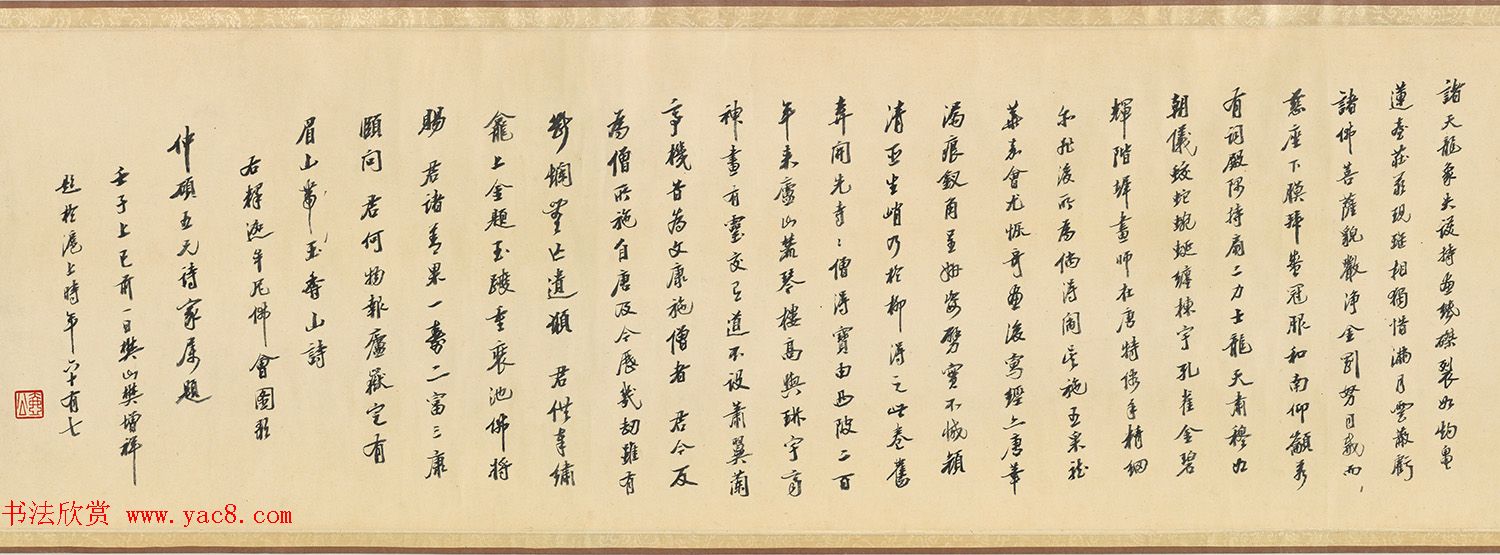 諸天龍象失設持畫然磔裂如灼龜
蓮臺莊嚴現雖相獨惜滿月雲蔽虧
諸佛菩薩貌嚴淨金剛努目威而
慈座下膜拜衆冠服和南仰籲若
有詞殿隅持扇二力士龍天肅穆如
朝儀蛟蛇蜿蜒纏棟宇孔雀金碧
輝階墀畫師在唐特傑手精細
如此後所為倘得閻吳施五采龍
華嘉會尤恢奇畫後寫經亦唐筆
漏痕釵角呈妍姿劈實不媿顏
清臣生峭乃於柳得之此卷舊
弆開先寺寺僧得寶由西陂二百
年來廬山麓琴樓高與琳宇齊
神畫有靈交有道不設蕭翼蘭
亭機昔為文康施僧者君今反
為僧所施自唐及今歷幾劫雖有
斷爛無亡遺願君供奉繡
龕上金題玉躞重裝池佛將
賜君諸善果一壽二富三康
頤問君何物報廬嶽定有
眉山帶玉香山詩
右釋迦牟尼佛會圖歌
仲碩五兄詩家屬題
壬子上巳前一日樊山樊增祥
題於滬上時年六十有七
书法欣赏 www.yac8.com